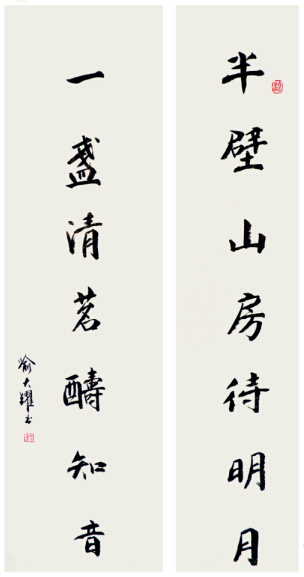 半壁山房待明月
一盏清茗醻知音
喻大耀书